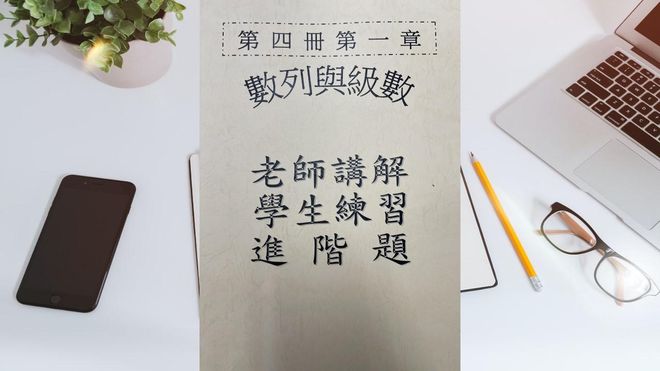 第四冊第一章
數列與級數
老師講解
學生練習
進階題